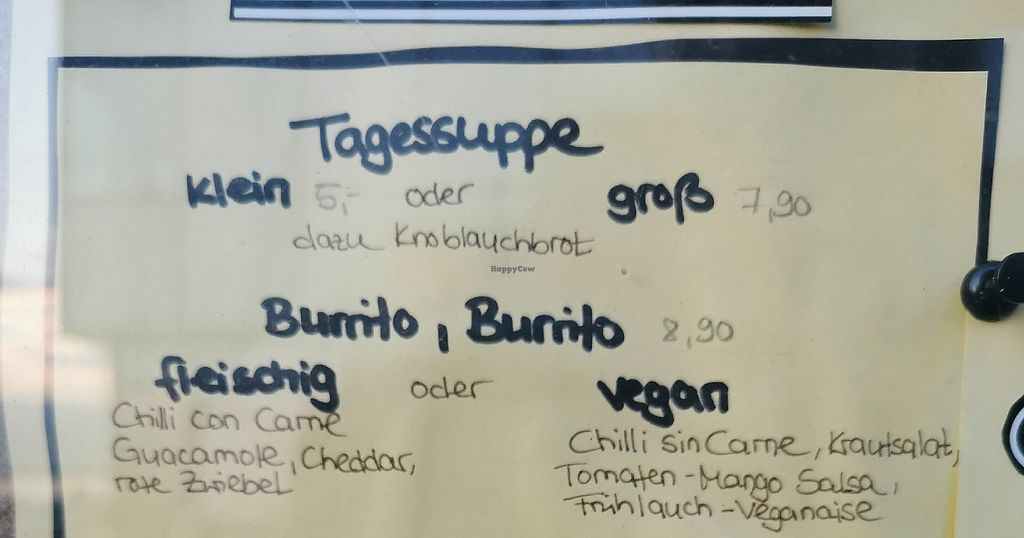 Tagessuppe
klein 5,- oder groß 7,90
dazu Knoblauchbrot
HappyCow
Burrito, Burrito 8,90
fleischig oder vegan
Chilli con Carne
Guacamole, Cheddar,
rote Zwiebel
Chilli sin Carne, Krautsalat,
Tomaten-Mango Salsa,
Frühlauch-Veganaise